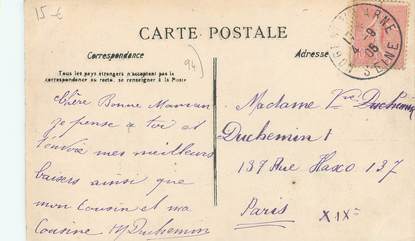 15 €
CARTE POSTALE
Correspondance
Adresse
94
Tous les pays étrangers n'acceptent pas la
correspondance au recto, se renseigner à la Poste
MARNE
SEINE
Chère Bonne Maman
je pense a toi et
t'envoie mes meilleurs
baisers ainsi que
mon Cousin et ma
Cousine M Duchemin
Madame Vve Duchemin
Duchemin
137 Rue Haxo 137
Paris
XIXe